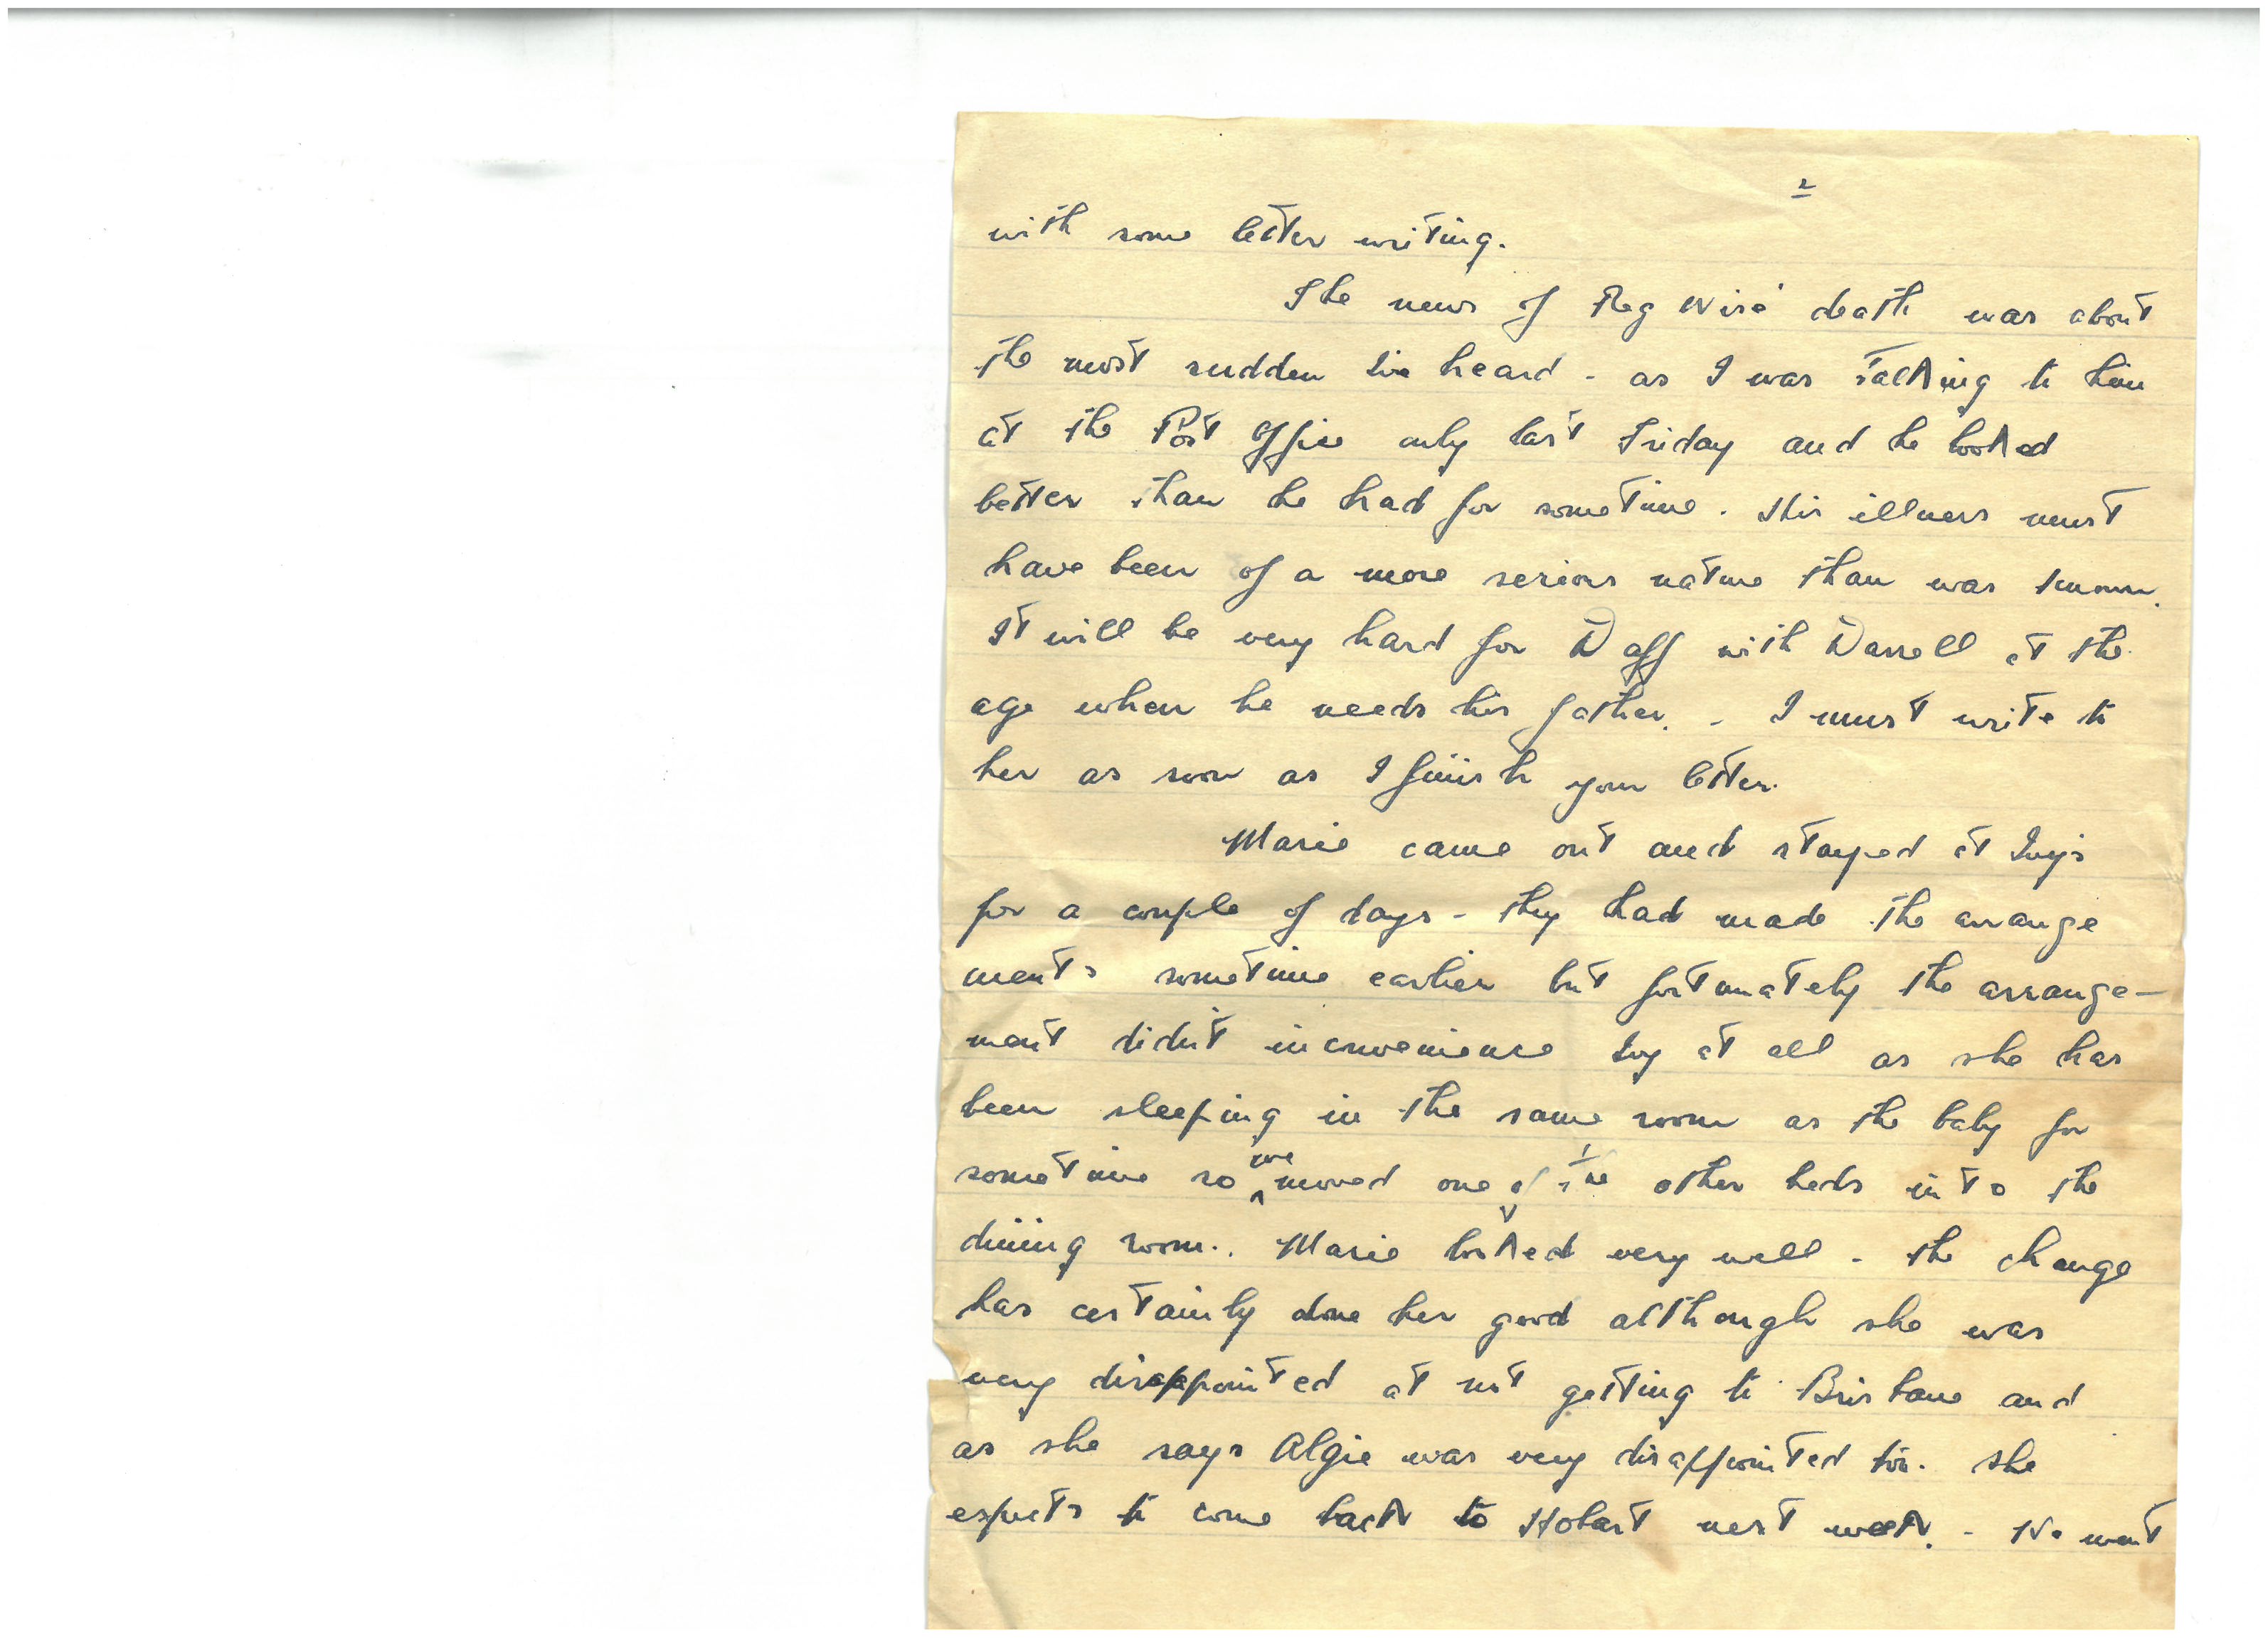 2
with some letter writing.
The news of Reg Wise' death was about
the most sudden I've heard - as I was talking to him
at the Post Office only last Friday and he looked
better than he had for sometime. His illness must
have been of a more serious nature than was known.
It will be very hard for Daff with Darrell at the
age when he needs his father. - I must write to
her as soon as I finish your letter.
Marie came out and stayed at Ivy's
for a couple of days - they had made the arrange
ments sometime earlier but fortunately the arrange-
ment didn't inconvenience Ivy at all as she has
been sleeping in the same room as the baby for
sometime so we moved one of the other beds into the
dining room.. Marie looked very well - the change
has certainly done her good although she was
very disappointed at not getting to Brisbane and
as she says Algie was very disappointed too. She
expects to come back to Hobart next week. - We went